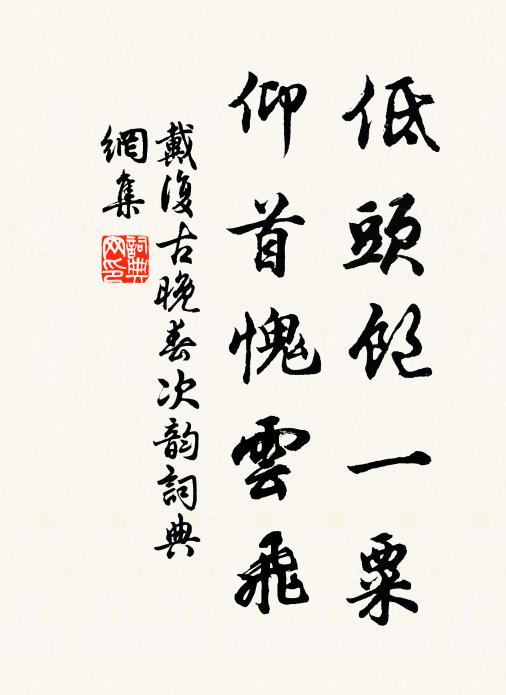 低頭飽一粟
仰首愧雲飛
戴復古晚春次韵詞典
網集
詞典
网印